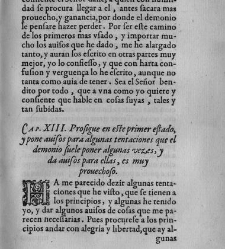 se procura llegar a el, antes sacara mas
prouecho, y ganancia, por donde el demonio
le pensare hazer perder. Por ser este camino
de los primeros mas vsado, y importar mu-
cho los auisos que he dado, me he alargado
tanto, y auran los escrito en otras partes muy
mejor, yo lo confiesso, y que con harta con-
fusion y verguença lo he escrito, aunque no
tanta como auia de tener. Sea el Señor ben-
dito por todo, que a vna como yo quiere y
consente que hable en cosas suyas, tales y
tan subidas.
CAP. XIII. Prosigue en este primer estado,
y pone auisos para algunas tentaciones que el
demonio suele poner algunas vezes: y
da auisos para ellas, es muy
prouechoso.
HA me parecido dezir algunas tenta-
ciones que he visto, que se tienen a
los principios, y algunas he tenido
yo, y dar algunos auisos de cosas que me pa-
recen necessarias. Pues procurese a los prin-
cipios andar con alegria y libertad, que ay al-
gunas